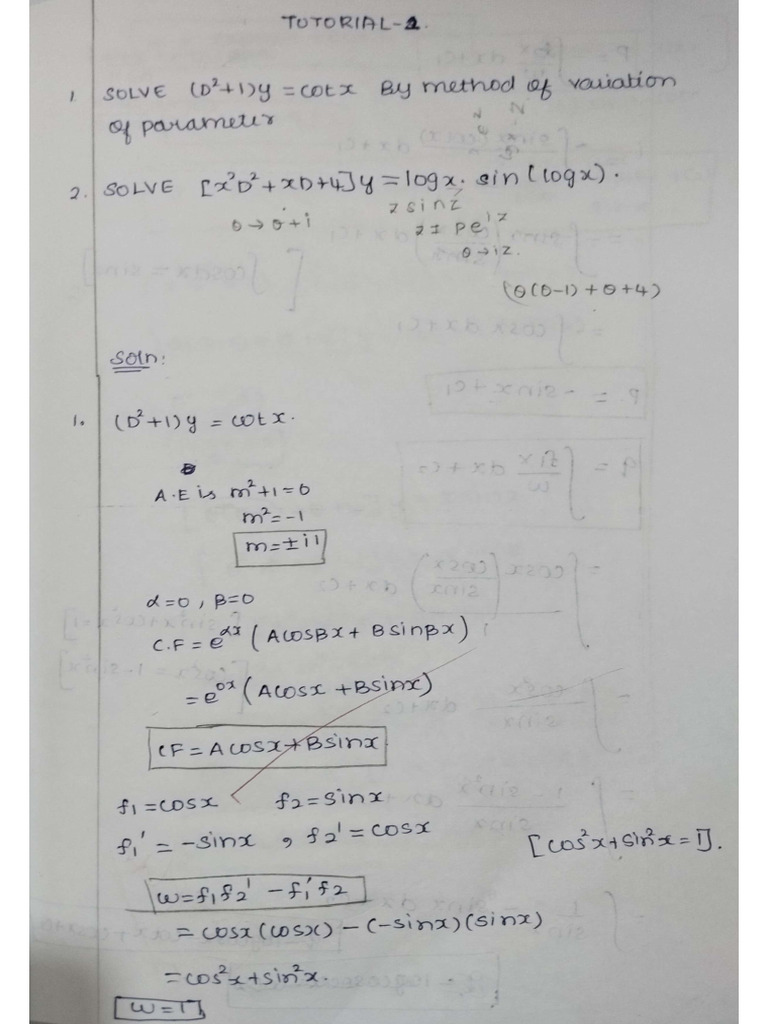 TUTORIAL-2.
1. SOLVE (D²+1)y = cotx By method of variation
of parameter
2. SOLVE [x²D²+xD+4]y = logx. sin(logx).
z sinz
θ→θ+i
z I P e^iz
θ→iz.
(θ(θ-1)+θ+4)
Soln:
1. (D²+1)y = cotx.
A.E is m²+1=0
m²=-1
m=±i1
α=0, β=0
C.F = e^αx (Acosβx + Bsinβx)
= e^0x (Acosx + Bsinx)
CF = Acosx + Bsinx
f₁ = cosx f₂ = sinx
f₁' = -sinx , f₂' = cosx
[cos²x+sin²x=1].
W = f₁f₂' - f₁'f₂
= cosx(cosx) - (-sinx)(sinx)
= cos²x + sin²x.
W=1